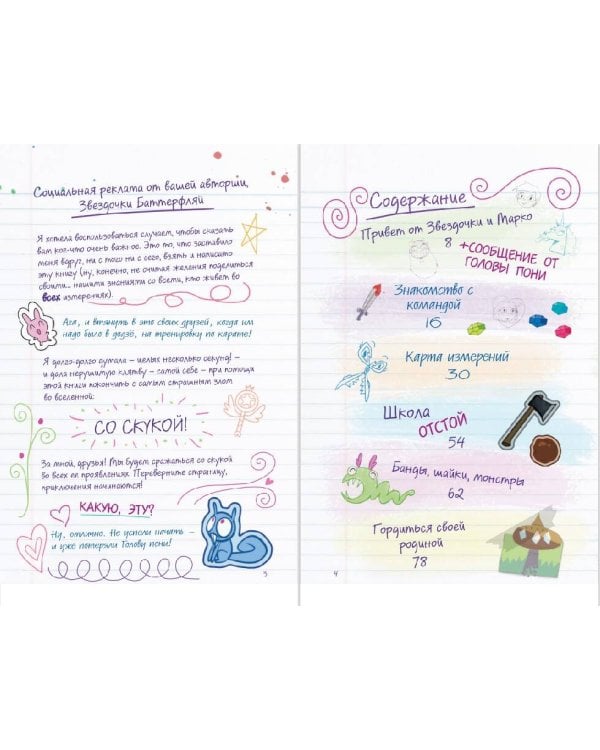 Социальная реклама от вашей автории,
Звездочки Баттерфляй
Я хотела воспользоваться случаем, чтобы сказать
вам кое-что очень важное. Это то, что заставило
меня вдруг, ни с того ни с сего, взять и написать
эту книгу (ну, конечно, не считая желания поделиться
своими... нашими знаниями со всеми, кто живет во
всех измерениях).
Ага, и втянуть в это своих друзей, когда им
надо было в додзё, на тренировку по карате!
Я долго-долго думала – целых несколько секунд! –
и дала нерушимую клятву – самой себе – при помощи
этой книги покончить с самым страшным злом
во вселенной:
СО СКУКОЙ!
За мной, друзья! Мы будем сражаться со скукой
во всех ее проявлениях. Переверните страницу,
приключения начинаются!
КАКУЮ, ЭТУ?
Ну, отлично. Не успели начать –
и уже потеряли Голову пони!
5
Содержание
Привет от Звездочки и Марко
8
+СООБЩЕНИЕ ОТ
ГОЛОВЫ ПОНИ
Знакомство с
командой
16
Карта измерений
30
Школа
ОТСТОЙ
54
Банды, шайки, монстры
62
Гордиться своей
родиной
78
4